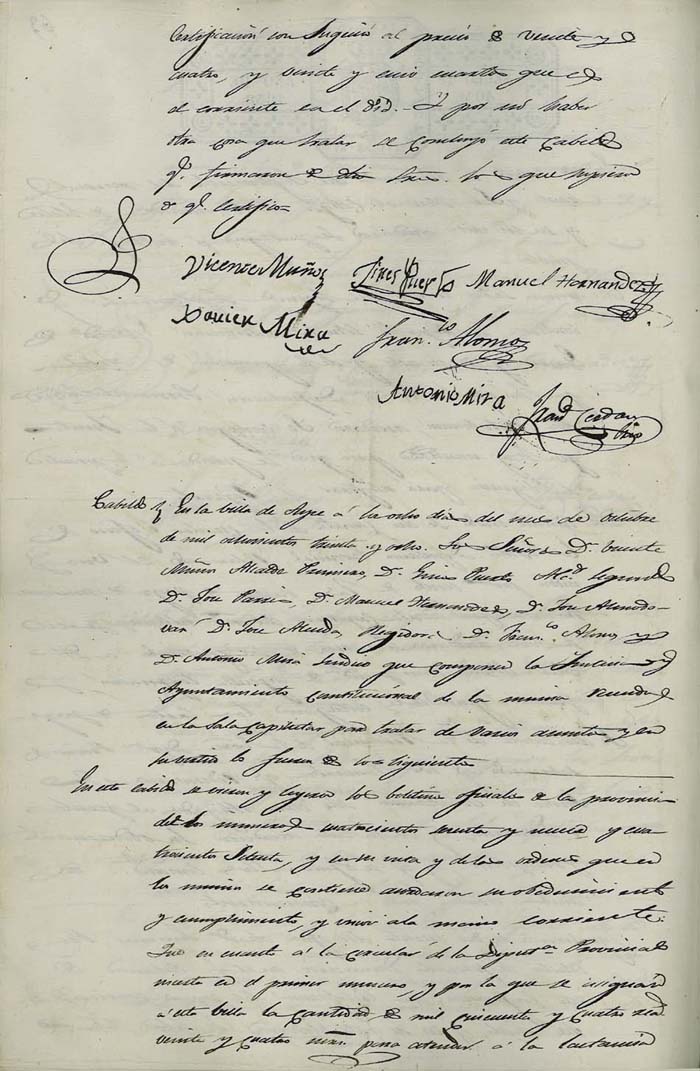 Certificación con sugeción al precio de veinte y
cuatro, y veinte y cinco cuartos que es
el corriente en el dia. Y por no haber
otra cosa que tratar se concluyó este Cabildo
q.e firmaron de dhos Sres. los que supieron
de q.e Certifico=
Vicente Muños Gines Puerto Manuel Hernandez
Xavier Mira Fran.co Alonso
Antonio Mira Fran.co Cerdan
Srio
Cabildo En la villa de Aspe á los ocho dias del mes de Octubre
de mil ochocientos treinta y ocho. Los Señores D. Vicente
Muños Alcalde Primero, D. Gines Puerto Ald. Segundo
D. Jose Pavia, D. Manuel Hernandez, D. Jose Almodo-
var, D. Jose Regidores D. Fran.co Alonso y
D. Antonio Mira Sindico que componen la Justicia y
Ayuntamiento Constitucional de la misma reunidos
en la Sala Capitular para tratar de varios asuntos y en
su vista lo fueron de los siguientes
En este Cabildo se vieron y leyeron los boletines oficiales de la provincia
de los numeros cuatrocientos sesenta y nueve, y cua-
trocientos Setenta, y en su vista y de las ordenes que en
los mismos se contiene acordaron su obedecimiento
y cumplimiento, y unir á la mano corriente.
Que en cuanto á la circular de la Diput.on Provincial
inserta en el primer numero, y por la que se asignan
á esta villa la Cantidad de mil cincuenta y cuatro rs.
veinte y cuatro mrs. para atender á la lactancia